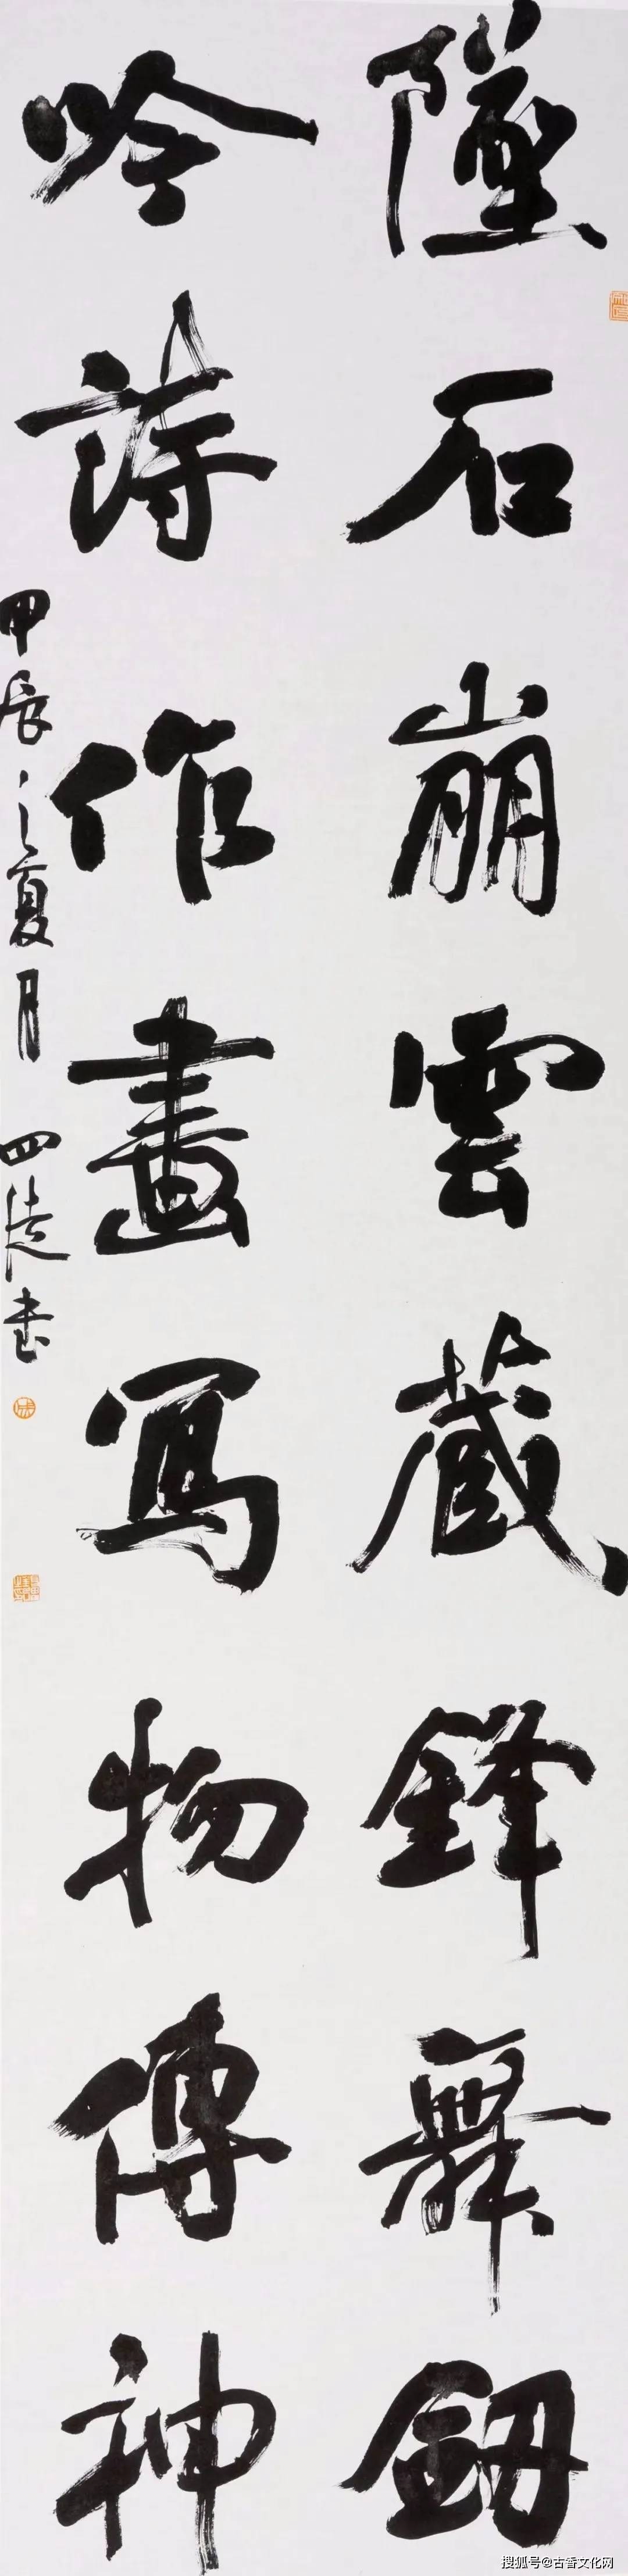 墜石崩雲蔵鋒舞釼
吟詩作畫寫物傳神
甲辰之夏月 四德书
搜狐号@古香文化网